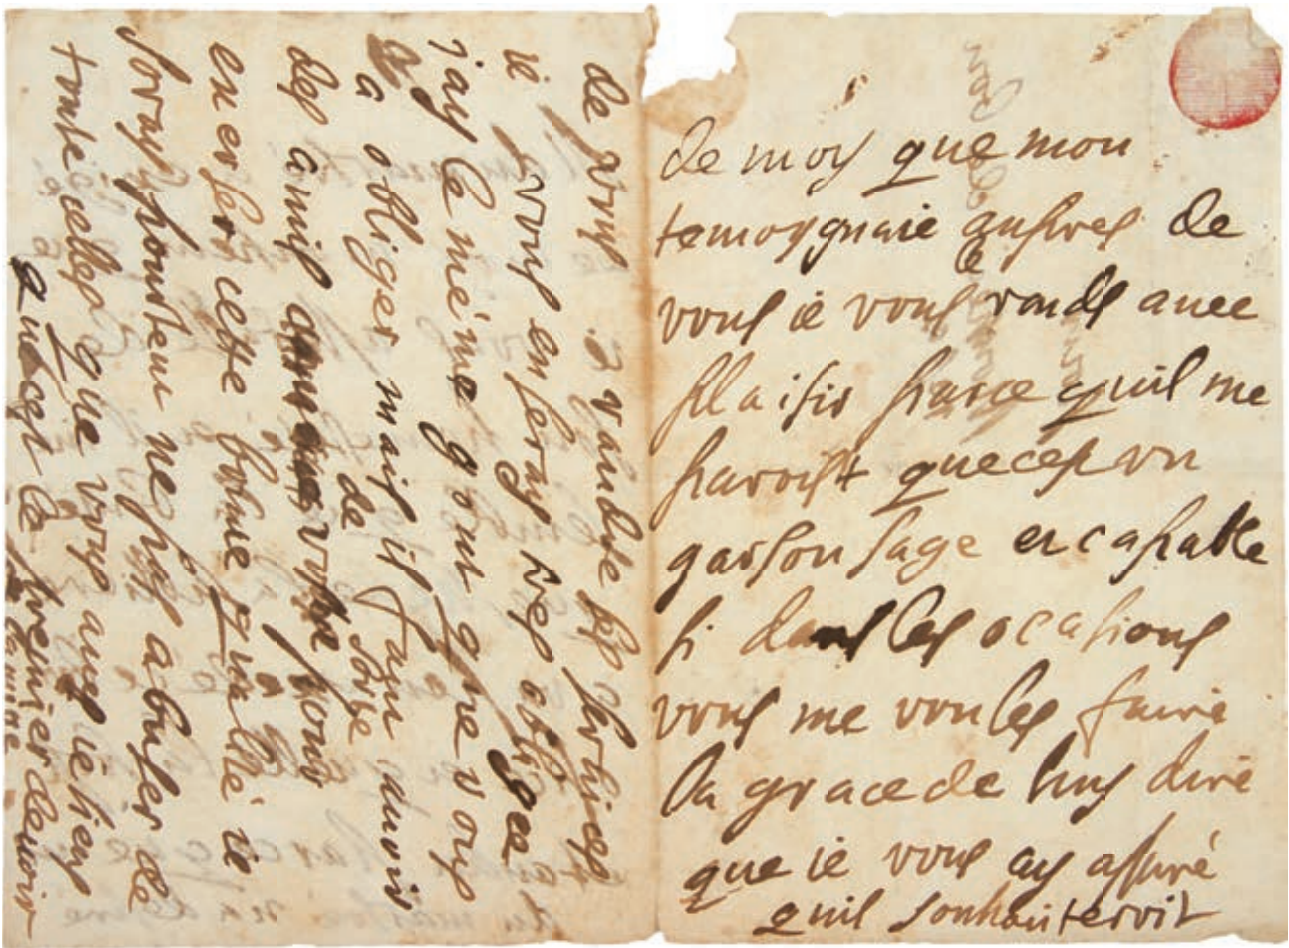 de moy que mon
temoygnaie aupres de
vous ie vous rends avec
plaisir parce quil me
paroist que ces vn
garson sage et capable
si dans les ocasions
vous me voules faire
la grace de luy dire
que ie vous ay assuré
quil souhaiteroit
de vous randre ses services
ie vous en seray tres obligee
jay le méme gout que vous
a obliger mais il faut avoir
de sorte
des amis vostre pour
en esperer cette bonne qualité ie
pourtan ne pas abuser de
toute celles que vous aves ie tiens
que cest le premier devoir